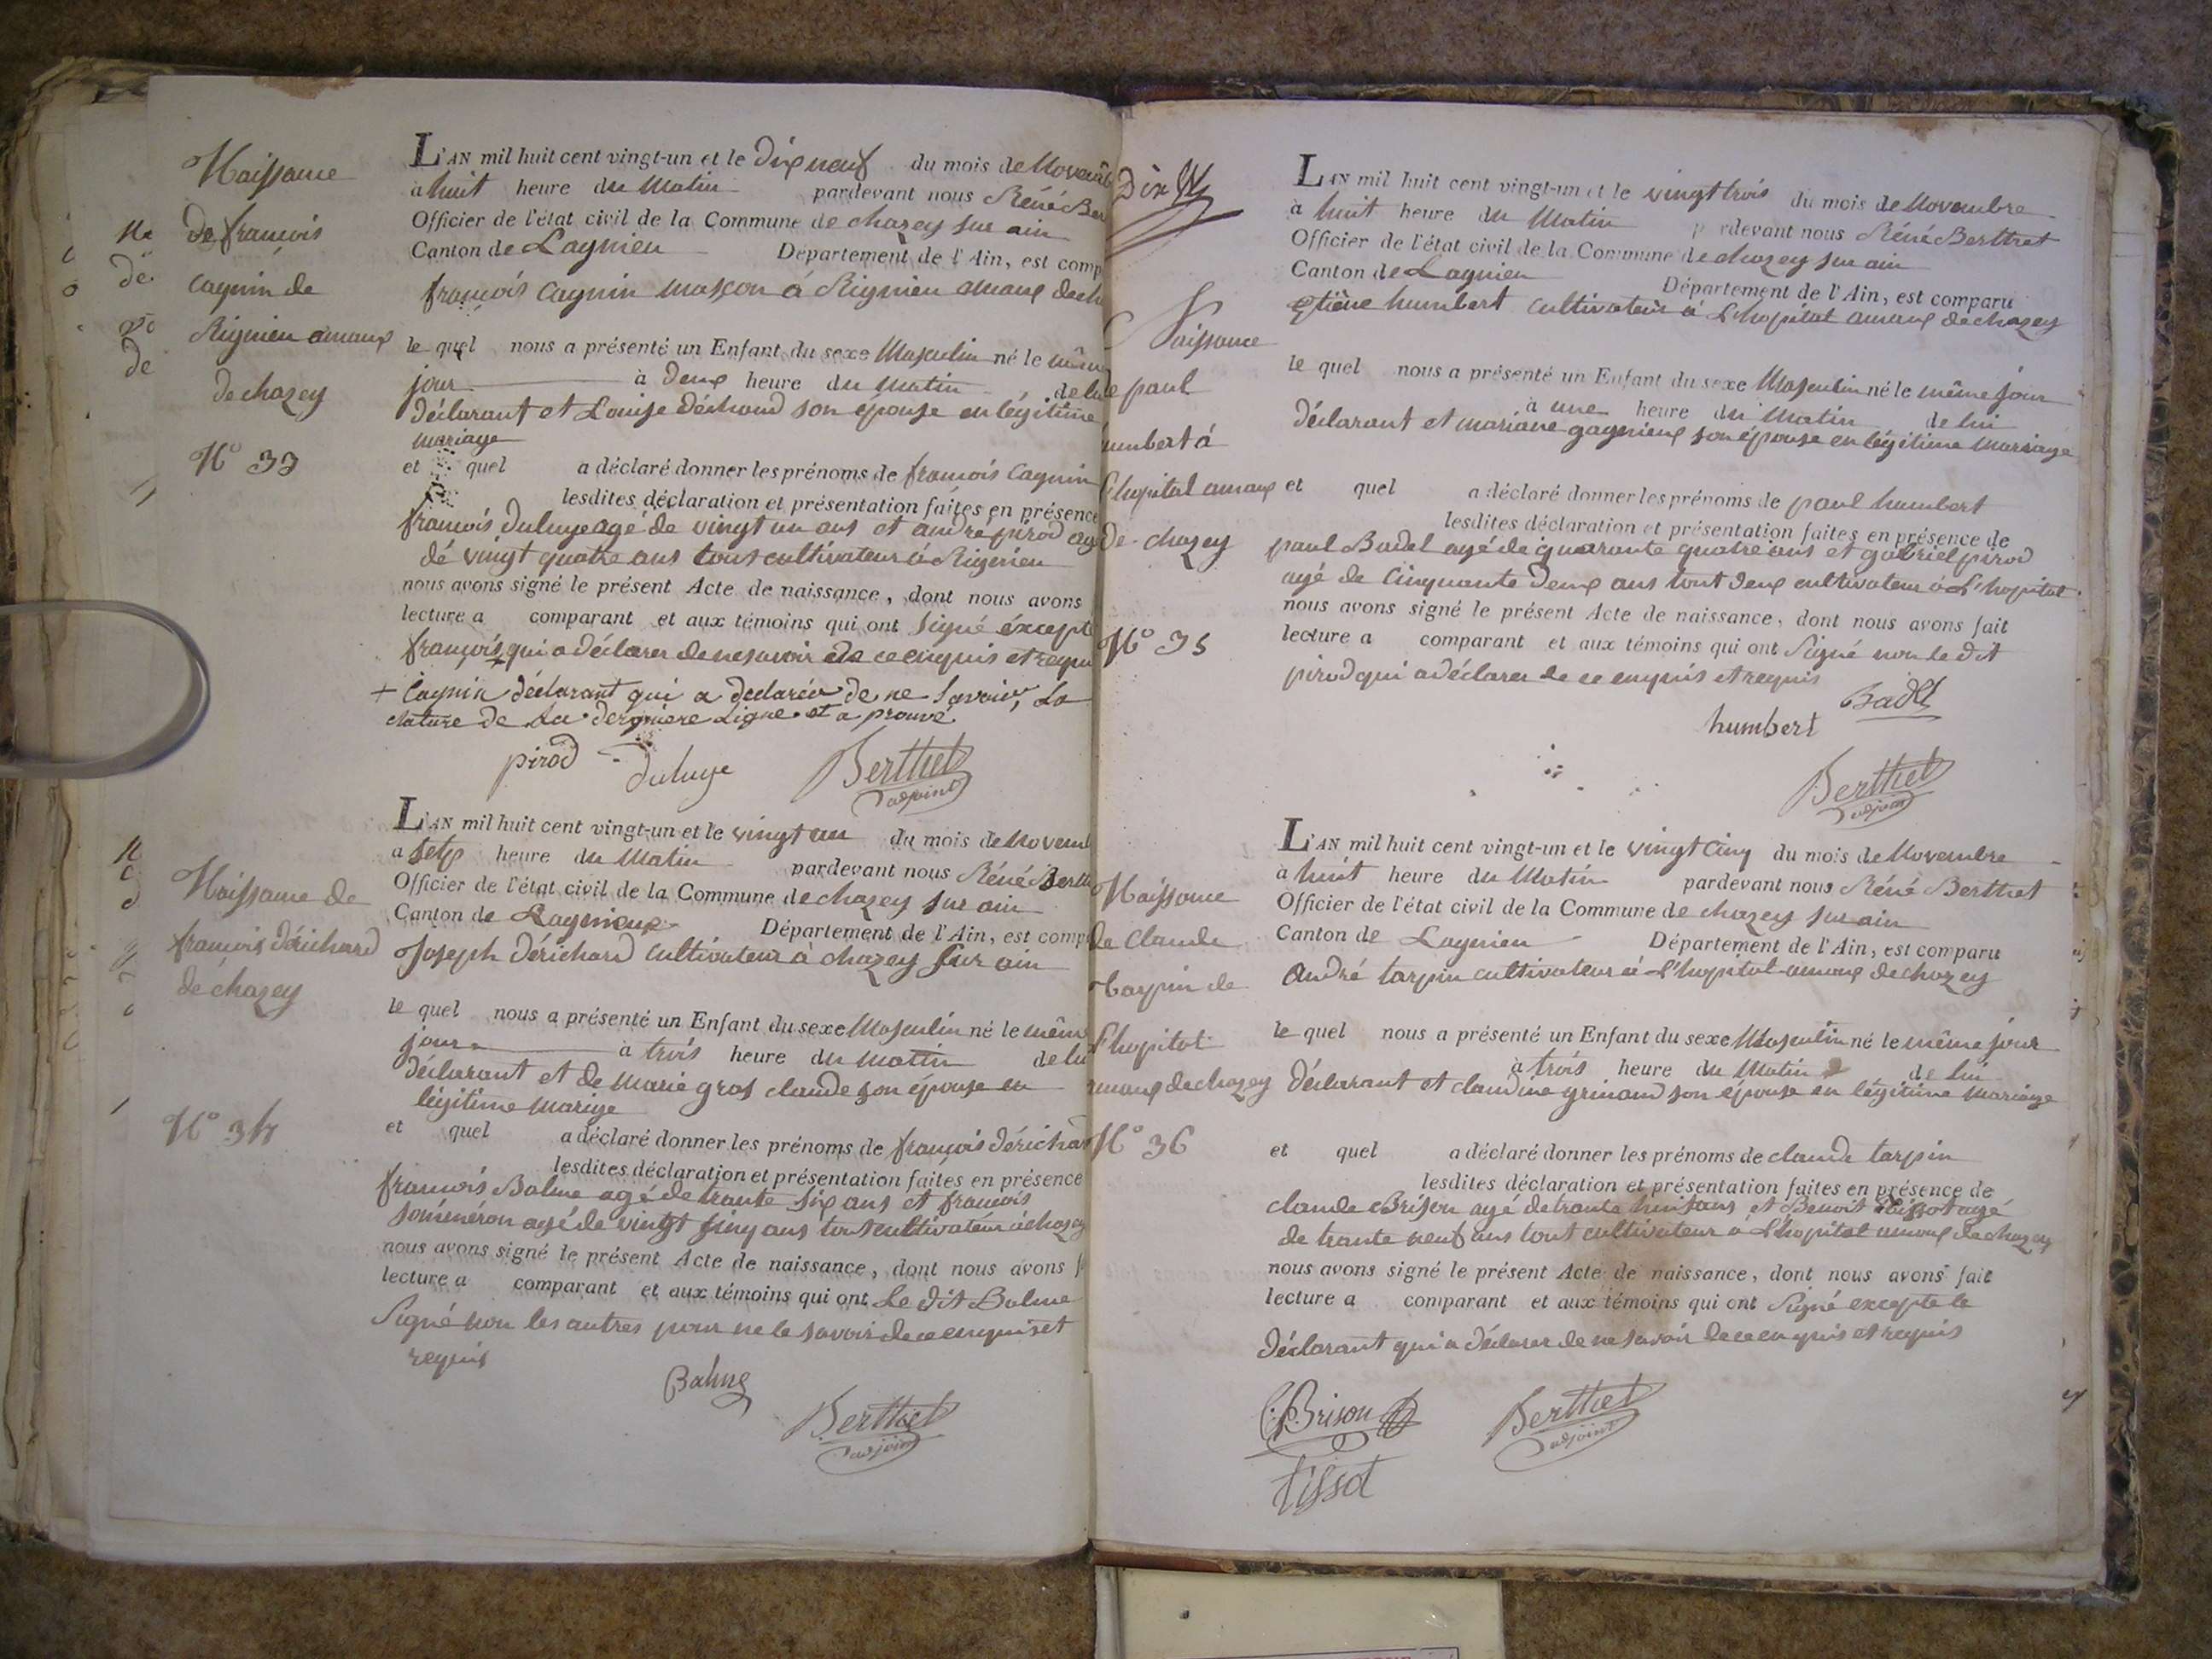 Naissance
de françois
Cagnin de
Rignieu amaux
de chazey
N° 33
L'AN mil huit cent vingt-un et le dix neuf du mois de Novemb
a huit heure du Matin pardevant nous Réné Ber
Officier de l'état civil de la Commune de chazey sur ain
Canton de Lagnieu Département de l'Ain, est comp
françois Cagnin masçon á Rignieu amaux dech
le quel nous a présenté un Enfant du sexe Masculin né le même
jour à deux heure du matin de lui
déclarant et Louise déchaud son épouse en légitime
mariage
et quel a déclaré donner les prénoms de françois Cagnin
lesdites déclaration et présentation faites en présence
francois duluye agé de vingt un ans et andré pirod agé
dé vingt quatre ans tous cultivateur á Rignieu
nous avons signé le présent Acte de naissance, dont nous avons
lecture a comparant et aux témoins qui ont Signé éxcepté
françois qui a déclarer de ne savoir de ce enquis et requi
+ Cagnin déclarant qui a declaréa de ne Savoir, La
de La dernniere Ligne et a prouvé
pirod duluye Berthet
adjoint
Naissance de
françois dérichard
dé chazey
N° 34
L'AN mil huit cent vingt-un et le vingt un du mois de Novemb
a sets heure du Matin pardevant nous Réné Berth
Officier de l'état civil de la Commune de chazey sur ain
Canton de Lagnieux Département de l'Ain, est comp
Joseph dérichard cultivateur à chazey sur ain
le quel nous a présenté un Enfant du sexe Masculin né le même
jour à trois heure du mattin de lui
déclarant et de Marie gros claude son épouse en
légitime Mariye
et quel a déclaré donner les prénoms de françois dérichar
lesdites déclaration et présentation faites en présence
francois Balme agé de trante six ans et francois
agé de vingt sinq ans tout cultivateur á chazey
nous avons signé le présent Acte de naissance, dont nous avons f
lecture a comparant et aux témoins qui ont Le dit Balme
Signé non les autres pour ne le savoir de ce enquis et
requis
Balme
Berthet
adjoint
Naissance
de paul
humbert á
L'hopital amaux
de chazey
N° 35
L'AN mil huit cent vingt-un et le vingt trois du mois de Novembre
à huit heure du Matin pardevant nous Réné Berthet
Officier de l'état civil de la Commune de chazey sur ain
Canton de Lagnieu Département de l'Ain, est comparu
humbert cultivateur á L'hopital amaux de chazey
le quel nous a présenté un Enfant du sexe Masculin né le même jour
à une heure du Matin de lui
déclarant et mariane gagnieux son épouse en légitime Mariage
et quel a déclaré donner les prénoms de paul humbert
lesdites déclaration et présentation faites en présence de
paul Badel agé de quarante quatre ans et gabriel pirod
agé de Cinquante deux ans tout deux cultivateur á L'hopital
nous avons signé le présent Acte de naissance, dont nous avons fait
lecture a comparant et aux témoins qui ont Signé non le dit
pirod qui a déclarer de ce enquis et requis
Badel
humbert
Berthet
adjoint
Naissance
de Claude
tarpin de
L'hopital
amaux de chazey
N° 36
L'AN mil huit cent vingt-un et le vingt Cinq du mois de Novembre
à huit heure du Matin pardevant nous Réné Berthet
Officier de l'état civil de la Commune de chazey sur ain
Canton de Lagnieu Département de l'Ain, est comparu
André tarpin cultivateur á L'hopital amaux de chazey
le quel nous a présenté un Enfant du sexe Masculin né le même jour
à trois heure du Matin de lui
déclarant et claudine grinand son épouse en légitime Mariage
et quel a déclaré donner les prénoms de claude tarpin
lesdites déclaration et présentation faites en présence de
claude Brison agé de trante huit ans et Benoit agé
de trante neuf ans tout cultivateur á L'hopital amaux de chazey
nous avons signé le présent Acte de naissance, dont nous avons fait
lecture a comparant et aux témoins qui ont Signé excepte le
déclarant qui a déclarer de ne savoir de ce enquis et requis
Brison Berthet
adjoint
tissot